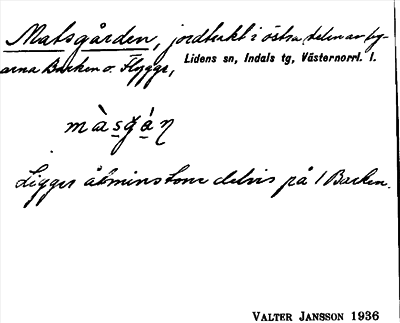 Matsgården, jordtrakt i östra delen av by-
arna Backen o. Flygge, Lidens sn, Indals tg, Västernorrl. l.
màsgáɳ
Ligger åtminstone delvis på 1 Backen.
VALTER JANSSON 1936